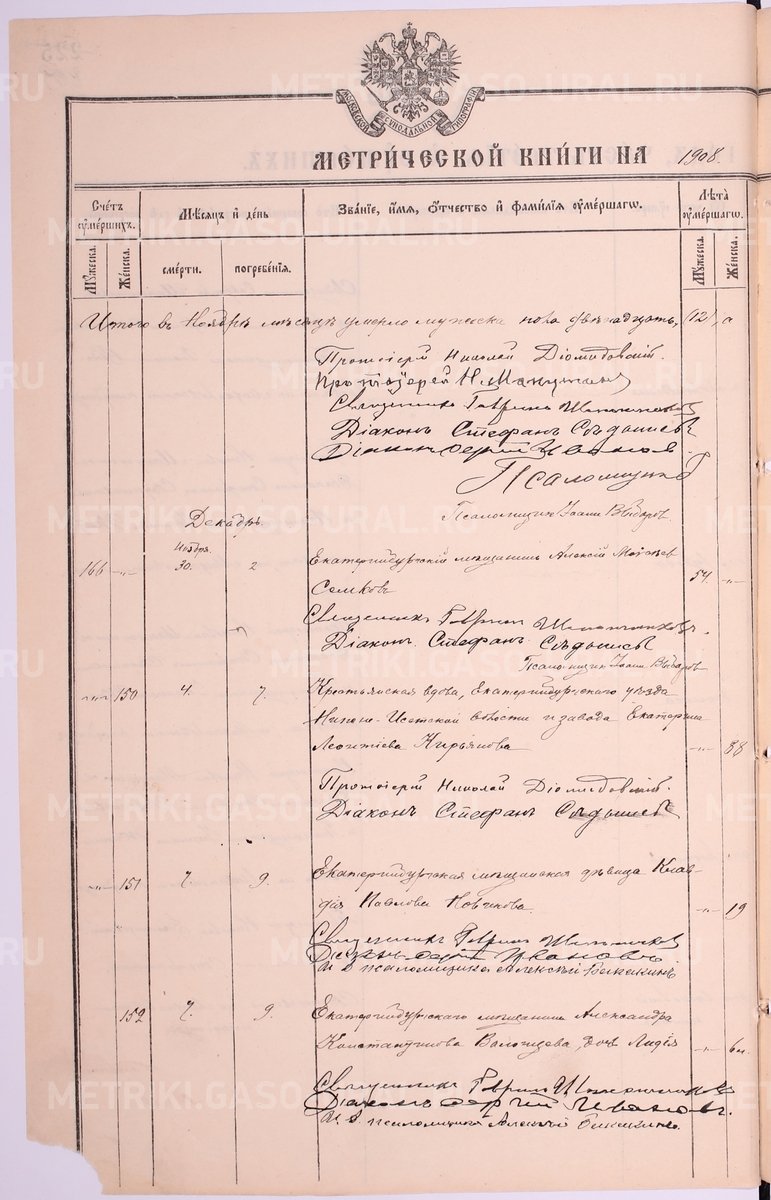 МОСКОВСКОЙ СѴНОДАЛЬНОЙ ТИПОГРАФІИ
МЕТРИЧЕСКОЙ КНИГИ НА 1908.
Счетъ умершихъ.
Мѣсяцъ и день
Званіе, имя, отчество и фамилія умершаго.
Лѣта умершаго.
Мужеска. Женска.
смерти. погребенія.
Мужеска. Женска.
Итого въ Ноябрѣ мѣсяцѣ умерло мужска пола двѣнадцать, (12), а
Протоіерей Николай Діомидовскій.
Протоіерей Н.
Священникъ Гавріилъ
Діаконъ Стефанъ
Діаконъ Сергій Ивановъ.
Псаломщикъ
Псаломщикъ Іоаннъ
Декабрь
Ноября
166 -"- 30. 2 Екатеринбургскій мѣщанинъ Алексій
Семковъ 54. -"-
Священникъ Гавріилъ
Діаконъ Стефанъ
Псаломщикъ Іоаннъ
-"- 150 4. 7. Крестьянская вдова, Екатеринбургскаго уѣзда
Нижне-Исетской волости и завода Екатерина
Леонтіева Кирьянова -"- 88
Протоіерей Николай Діомидовскій.
Діаконъ Стефанъ
-"- 151 7. 9. Екатеринбургская мѣщанская дѣвица Клав-
дія Павлова Новикова. -"- 19
Священникъ Гавріилъ
Діаконъ Сергій Ивановъ.
И. д. псаломщика Алексій
152 7. 9. Екатеринбургскаго мѣщанина Александра
Константинова дочь Лидія -"- 6 м.
Священникъ Гавріилъ
Діаконъ Сергій Ивановъ.
И. д. псаломщика Алексій
METRIKI.GASO-URAL.RU